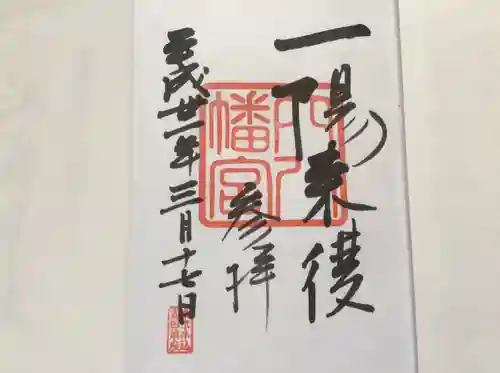 一陽来復
穴八
幡宮
参拝
平成卅一年三月十七日